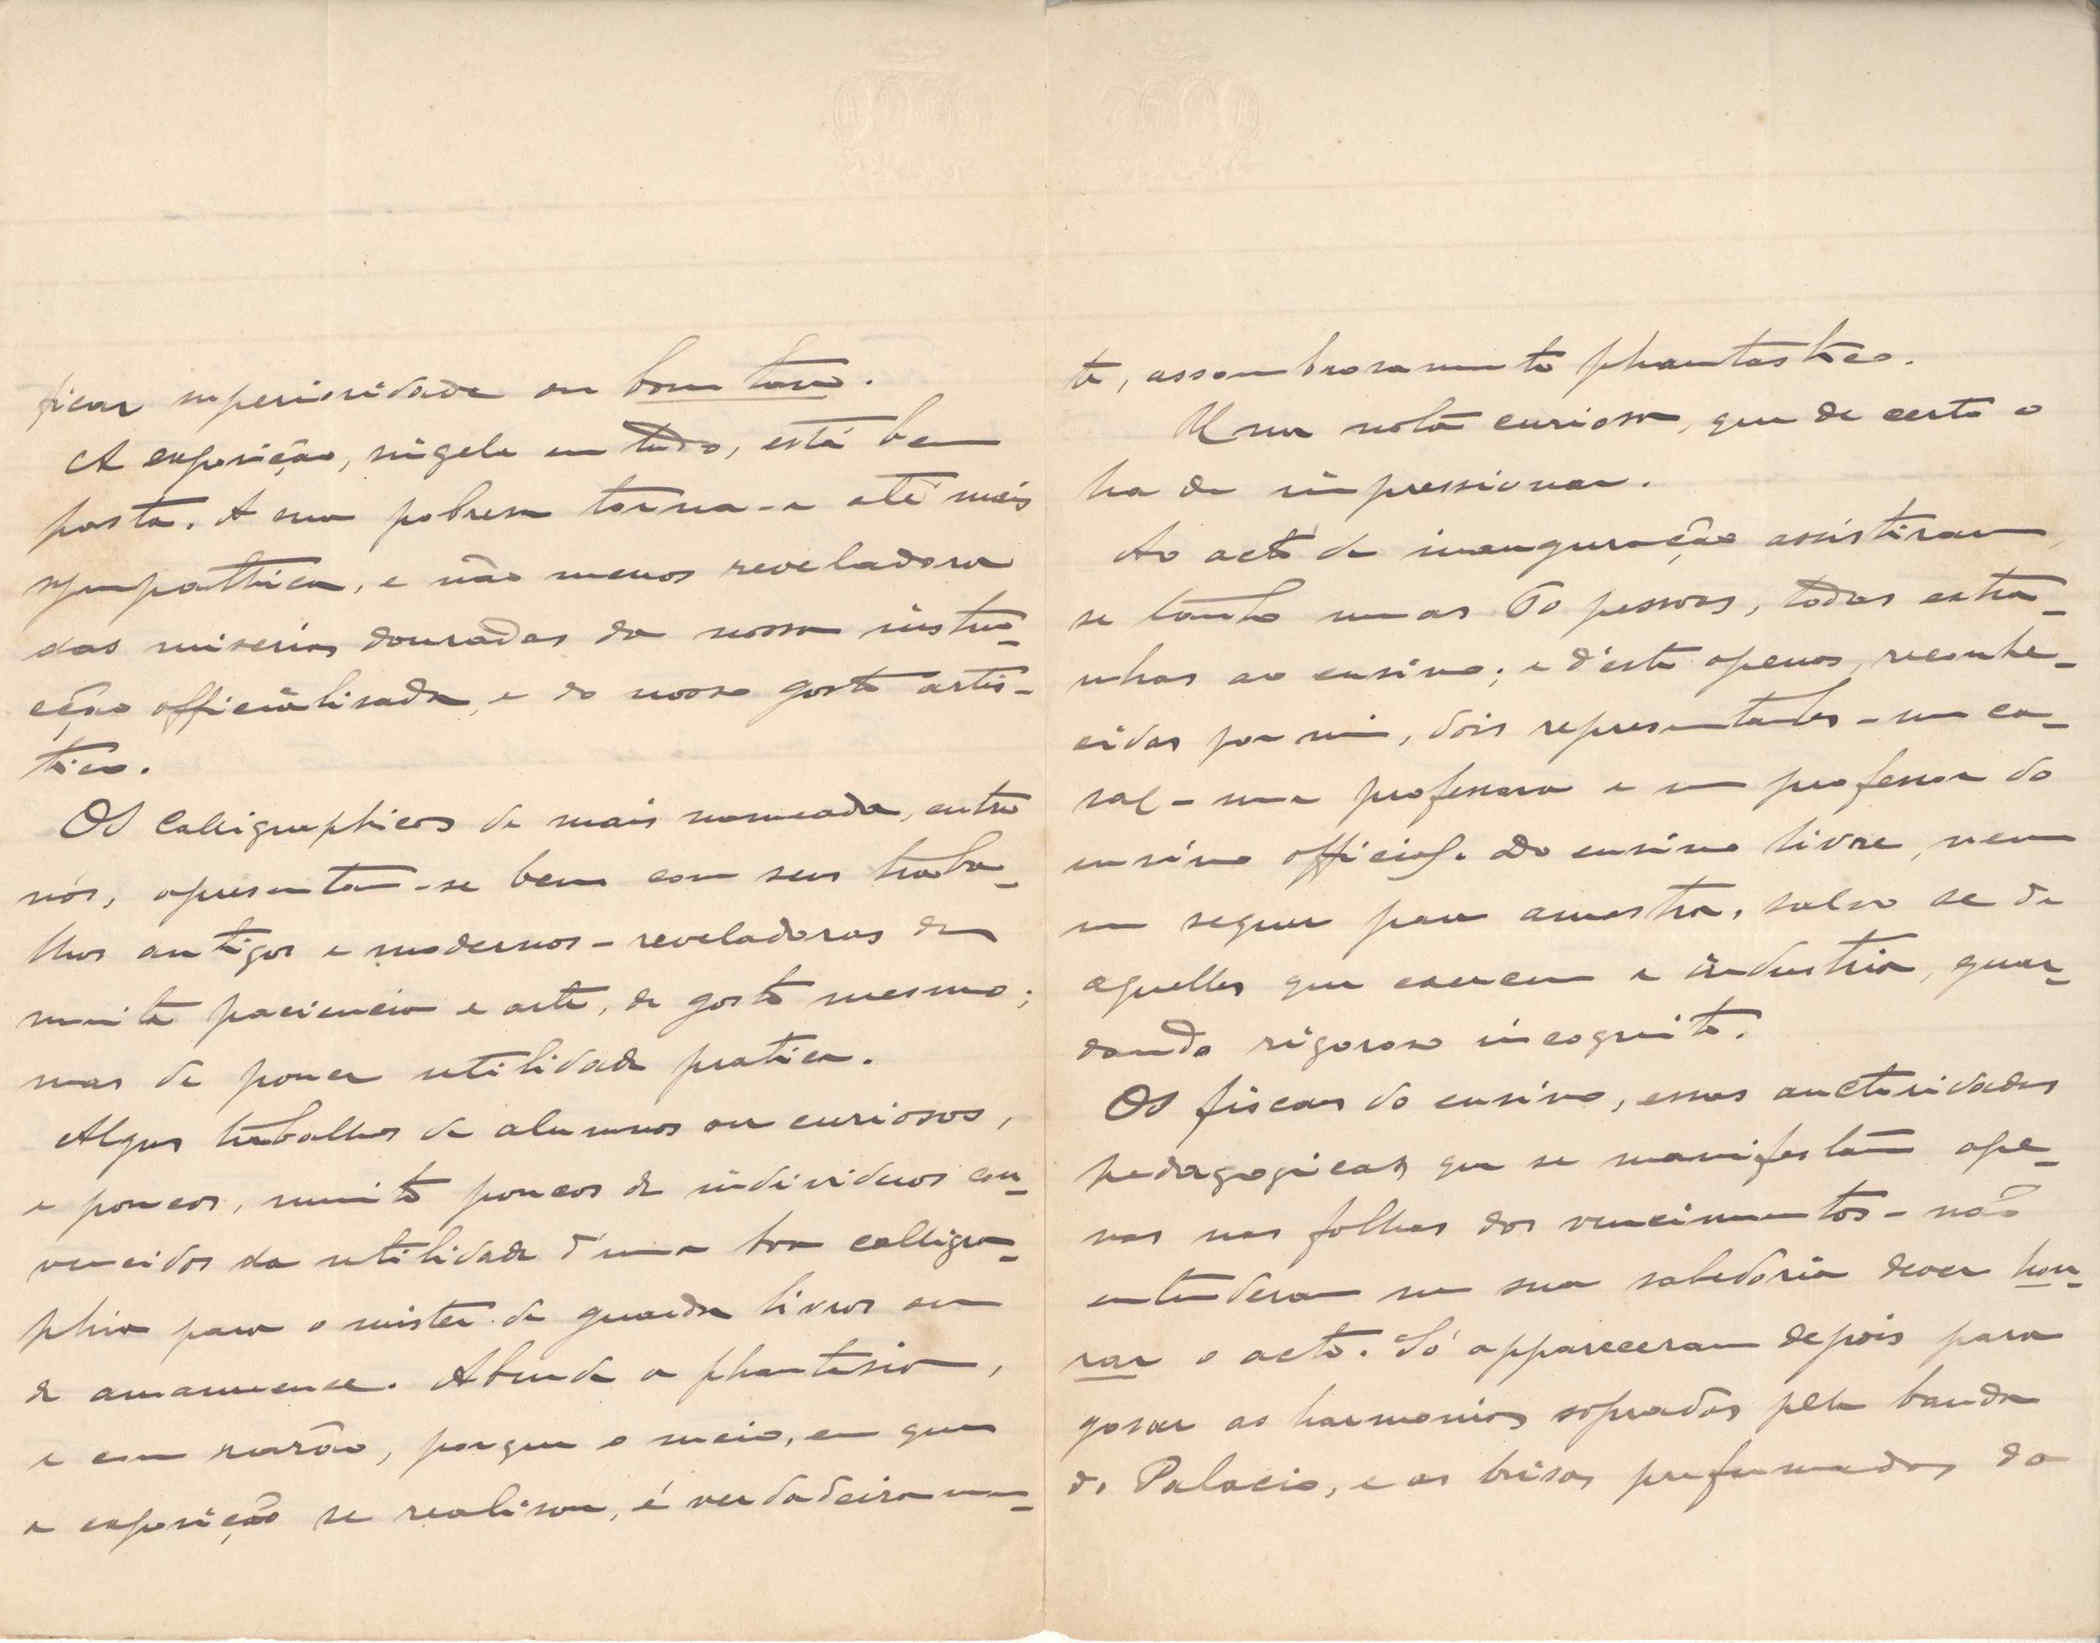 ficar superioridade ou bom tom.
A exposição, singela em tudo, está bem
posta. A sua pobresa torna-a até mais
sympathica, e não menos reveladora
das miserias douradas da nossa instru-
cção officialisada, e do nosso gosto artis-
tico.
Os Calligraphicos de mais nomeada, entre
nós, apresentam-se bem com seus traba-
lhos antigos e modernos - reveladoras de
muita paciencia e arte, de gosto mesmo;
mas de pouca utilidade pratica.
Alguns trabalhos de alumnos ou curiosos,
e poucos, muito poucos de individuos con-
vencidos da utilidade d'uma boa calligra-
phia para o mister de guarda livros ou
de amanuense. Abunda a phantasia,
e com razão, porque o meio, em que
a exposição se realisou, é verdadeiramen-
te, assombrosamente phantastico.
Uma nota curiosa, que de certo o
ha de impressionar.
Ao acto da inauguração assistiram,
se tanto umas 60 pessoas, todas extra-
nhas ao ensino; e d'este apenas, reconhe-
cidas por mim, dois representantes - um ca-
sal - uma professora e um professor do
ensino official. Do ensino livre, nem
um sequer para amostra, salvo se de
aquelles que exercem a industria, guar-
dando rigoroso incognito.
Os fiscaes do ensino, essas auctoridades
pedagogicas que se manifestam ape-
nas nas folhas dos vencimentos - não
entenderam na sua sabedoria dever hon-
rar o acto. Só appareceram depois para
gosar as harmonias sopradas pela banda
do Palacio, e as brisas prefumadas da